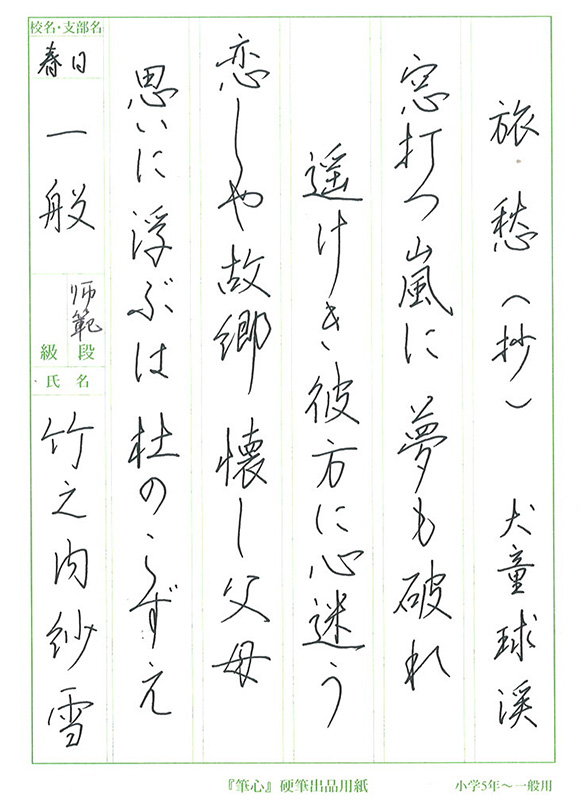 旅愁（抄）　犬童球渓
窓打つ嵐に　夢も破れ
遥けき彼方に心迷う
恋しや故郷　懐し父母
思いに浮ぶは　杜のこずえ
校名・支部名
春日
一般
師範
級段
氏名
竹之内紗雪
『筆心』硬筆出品用紙
小学5年～一般用